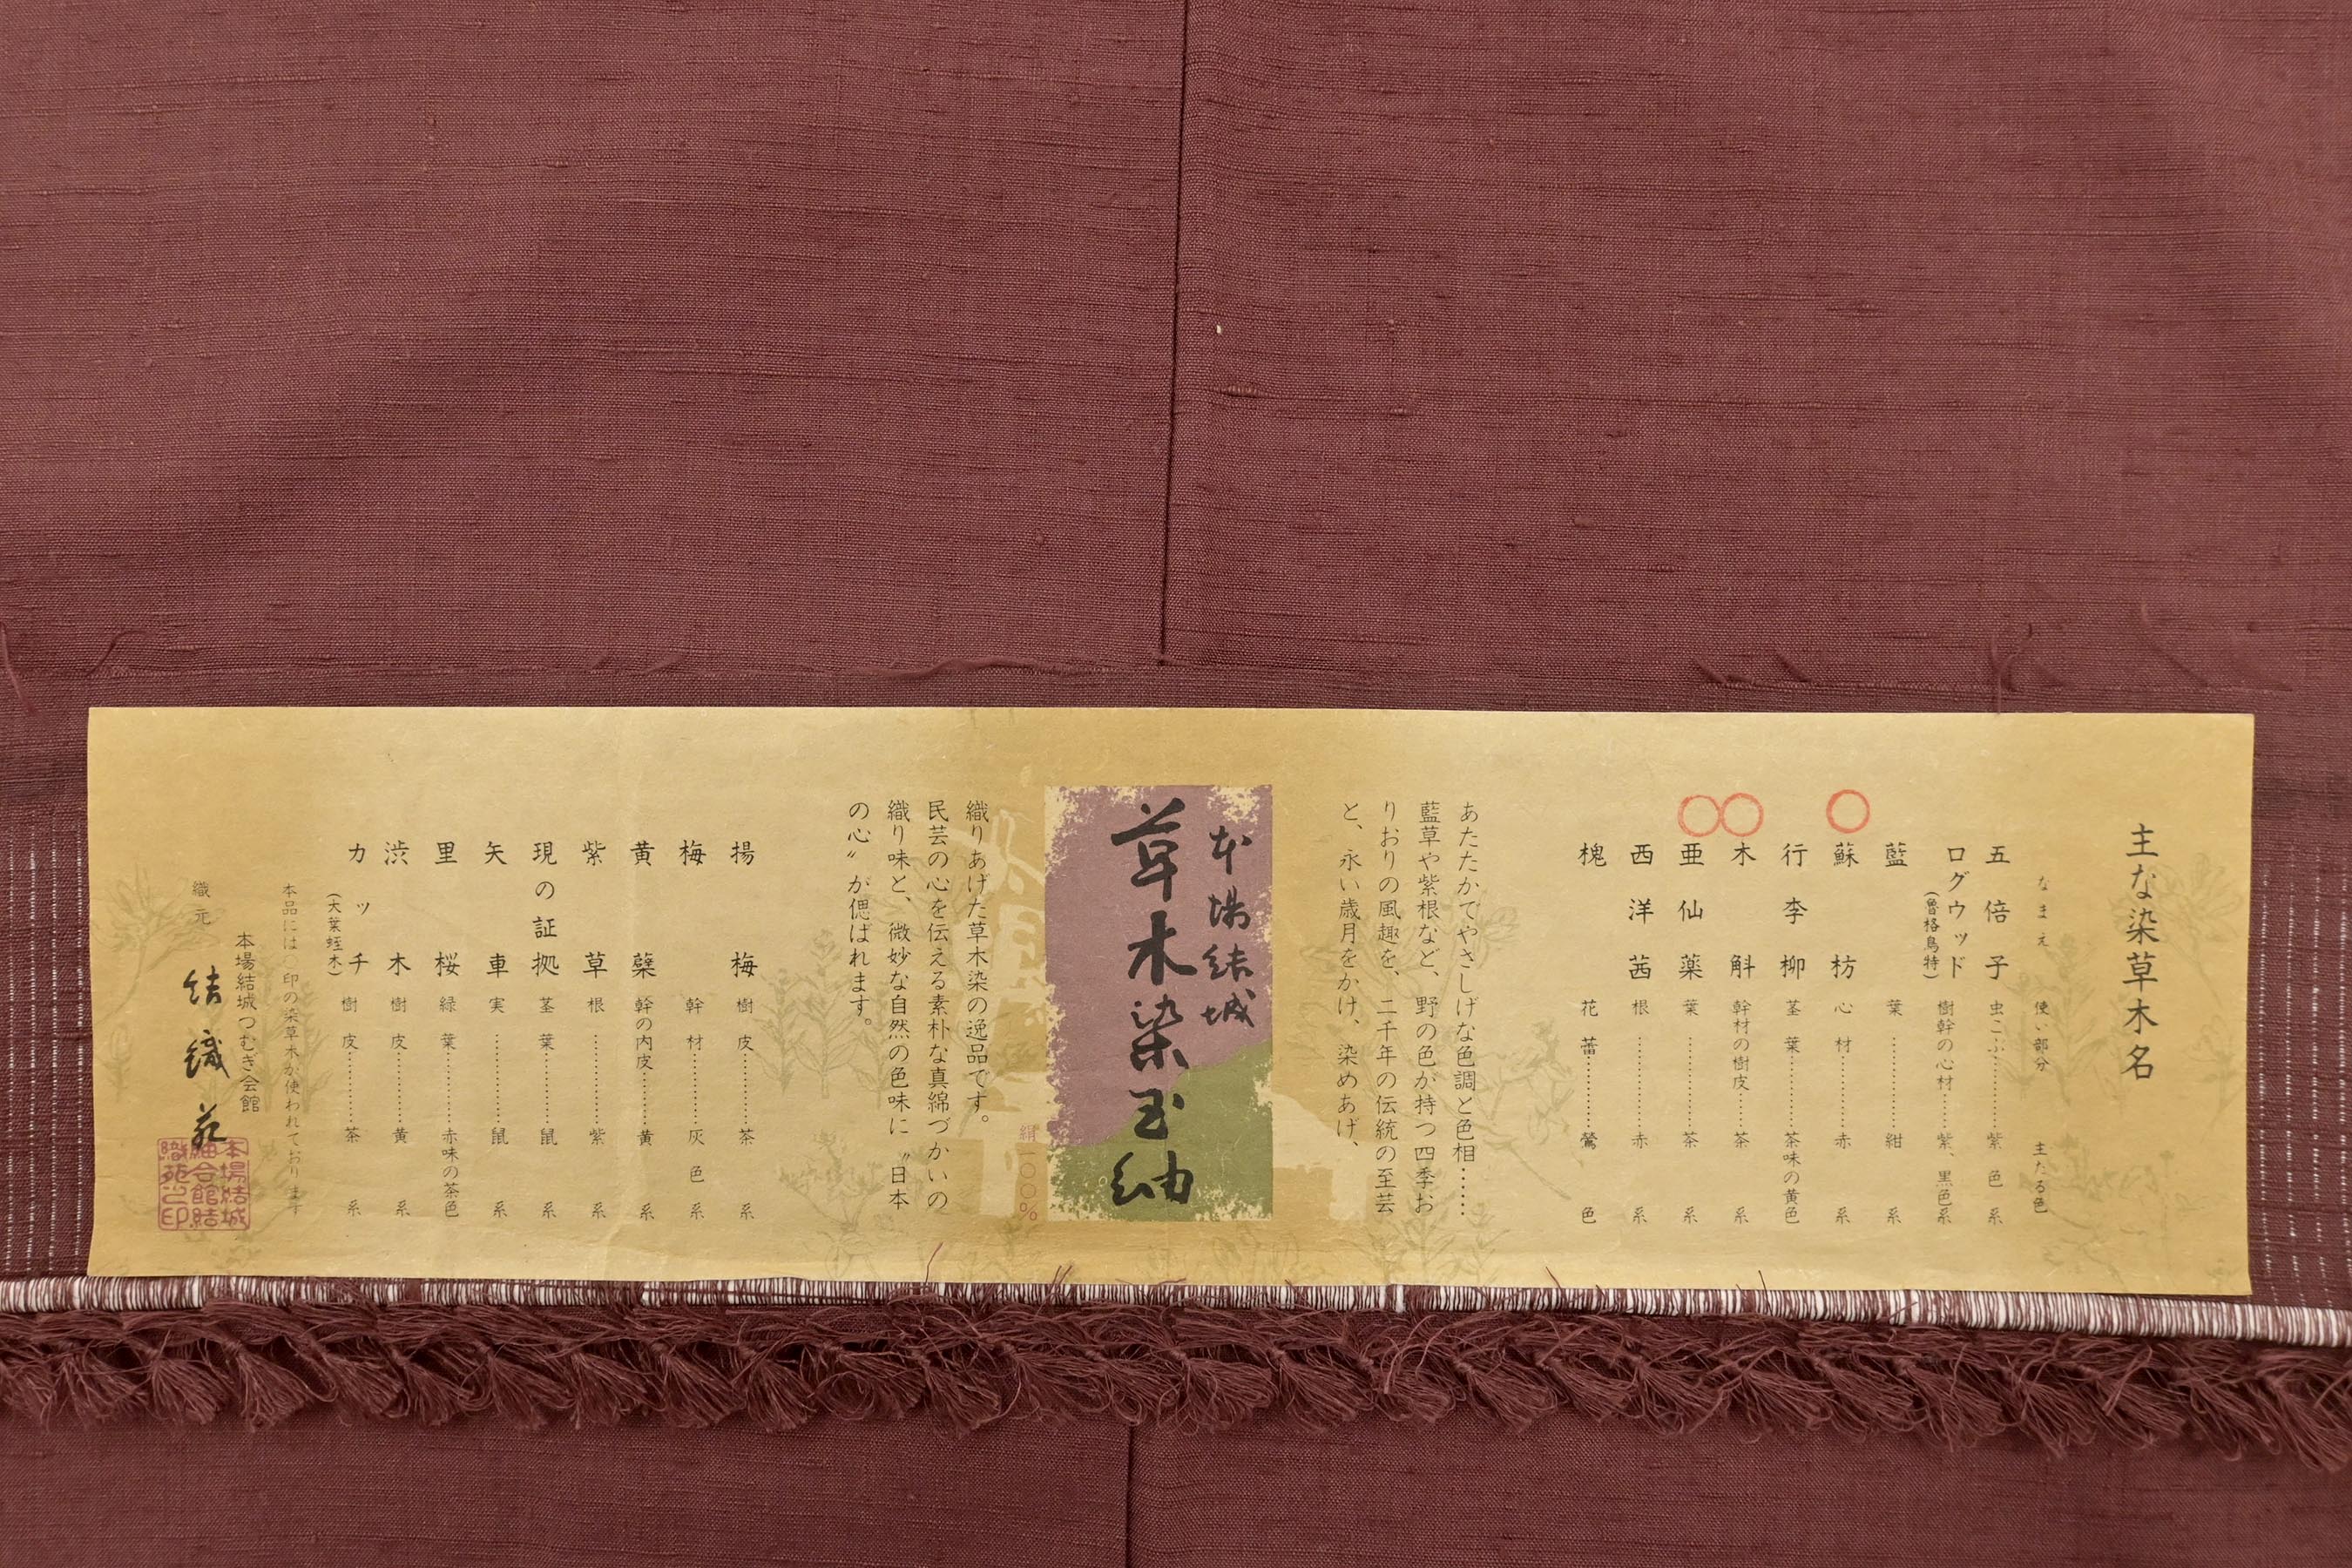 主な染草木名
なまえ 使い部分 主たる色
五倍子 虫こぶ………紫色系
ログウッド(魯格烏特) 樹幹の心材……紫、黒色系
藍 葉…………紺系
○蘇枋 心材…………赤系
行李柳 茎葉…………茶味の黄色
○木斛 幹材の樹皮……茶系
○亜仙薬 葉…………茶系
西洋茜 根…………赤系
槐 花蕾…………鶯色
あたたかでやさしげな色調と色相……
藍草や紫根など、野の色が持つ四季お
りおりの風趣を、二千年の伝統の至芸
と、永い歳月をかけ、染めあげ、
本場結城
草木染玉紬
絹一〇〇%
織りあげた草木染の逸品です。
民芸の心を伝える素朴な真綿づかいの
織り味と、微妙な自然の色味に〝日本
の心〟が偲ばれます。
揚梅 樹皮…………茶系
梅 幹材…………灰色系
黄蘗 幹の内皮……黄系
紫草 根…………紫系
現の証拠 茎葉…………鼠系
矢車 実…………鼠系
里桜 緑葉…………赤味の茶色
渋木 樹皮…………黄系
カッチ(大葉蛭木) 樹皮…………茶系
本品には○印の染草木が使われております
本場結城つむぎ会館
織元 結織苑
本場結城
紬会館結
織苑之印